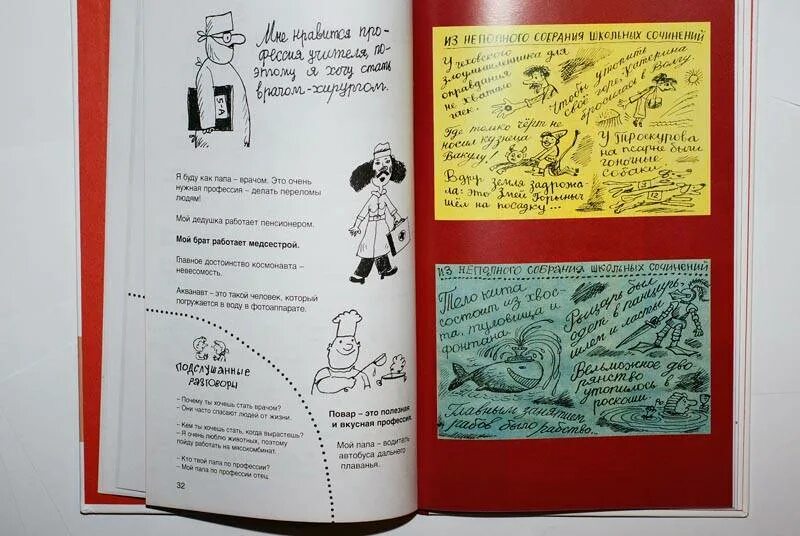 Мне нравится про-
фессия учителя, по-
этому я хочу стать
врачом-хирургом.
5-А
Я буду как папа – врачом. Это очень
нужная профессия – делать переломы
людям!
Мой дедушка работает пенсионером.
Мой брат работает медсестрой.
Главное достоинство космонавта –
невесомость.
Акванавт – это такой человек, который
погружается в воду в фотоаппарате.
ПОДСЛУШАННЫЕ
РАЗГОВОРЫ
- Почему ты хочешь стать врачом?
- Они часто спасают людей от жизни.
- Кем ты хочешь стать, когда вырастешь?
- Я очень люблю животных, поэтому
пойду работать на мясокомбинат.
- Кто твой папа по профессии?
- Мой папа по профессии отец.
Повар – это полезная
и вкусная профессия.
Мой папа – водитель
автобуса дальнего
плаванья.
32
ИЗ НЕПОЛНОГО СОБРАНИЯ ШКОЛЬНЫХ СОЧИНЕНИЙ
У чеховского
злоумышленника для
оправдания
не хватало
гаек.
Чтобы утопить
своё горе, Катерина
бросилась в Волгу.
Где только чёрт не
носил кузнеца
Вакулу!
У Троекурова
на псарне были
гоночные
собаки.
Вдруг земля задрожа-
ла: это Змей Горыныч
шёл на посадку...
ИЗ НЕПОЛНОГО СОБРАНИЯ ШКОЛЬНЫХ СОЧИНЕНИЙ
Тело кита
состоит из хвос-
та, туловища и
фонтана.
Рыцарь был
одет в панцирь,
шлем и ласты
Вельможное дво
рянство
утопилось в
роскоши.
Главным занятием
рабов было рабство.